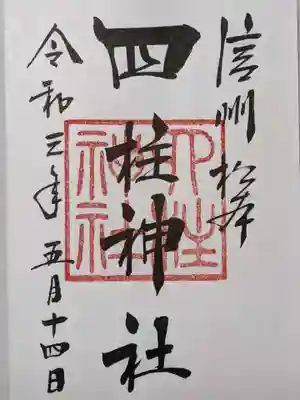 信州松本
四柱神社
四柱神社
令和三年五月十四日